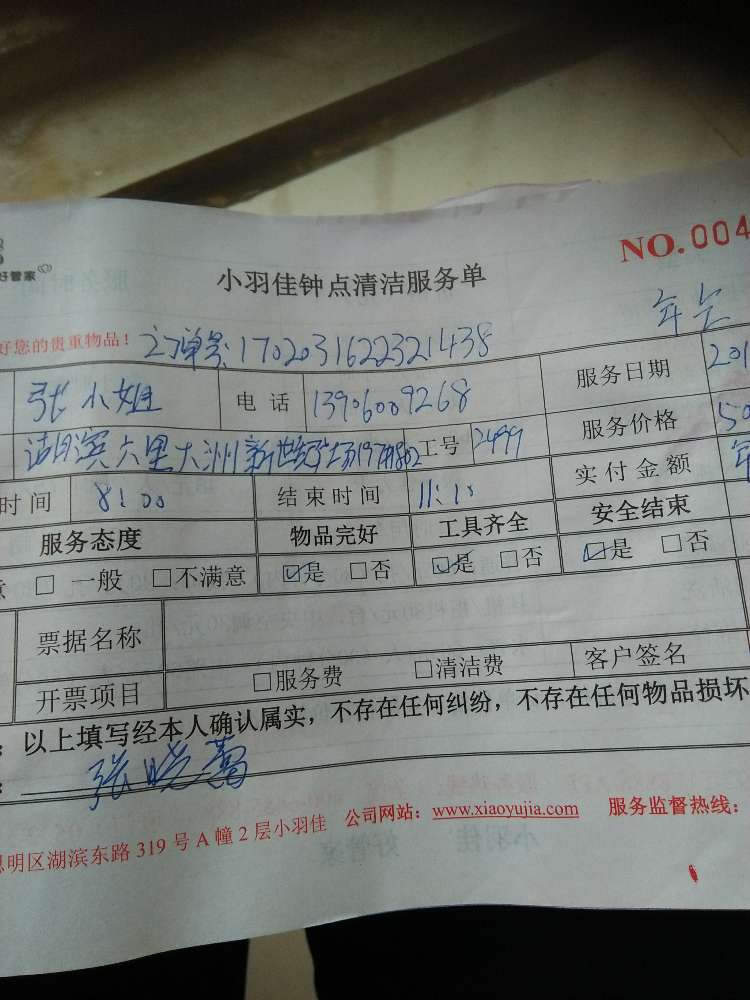 好管家
小羽佳钟点清洁服务单
NO.004
好您的贵重物品! 订单号:1702031622321438
张小姐 电话 13906009268 服务日期 201
湖滨六里大洲新世纪广场 工号 2499 服务价格 50
时间 8:00 结束时间 11:10 实付金额
服务态度 物品完好 工具齐全 安全结束
意 □ 一般 □不满意 ☑是 □否 ☑是 □否 ☑是 □否
票据名称
开票项目 □服务费 □清洁费 客户签名
: 以上填写经本人确认属实，不存在任何纠纷，不存在任何物品损坏
: 张晓
思明区湖滨东路 319 号 A 幢 2 层小羽佳 公司网站: www.xiaoyujia.com 服务监督热线: